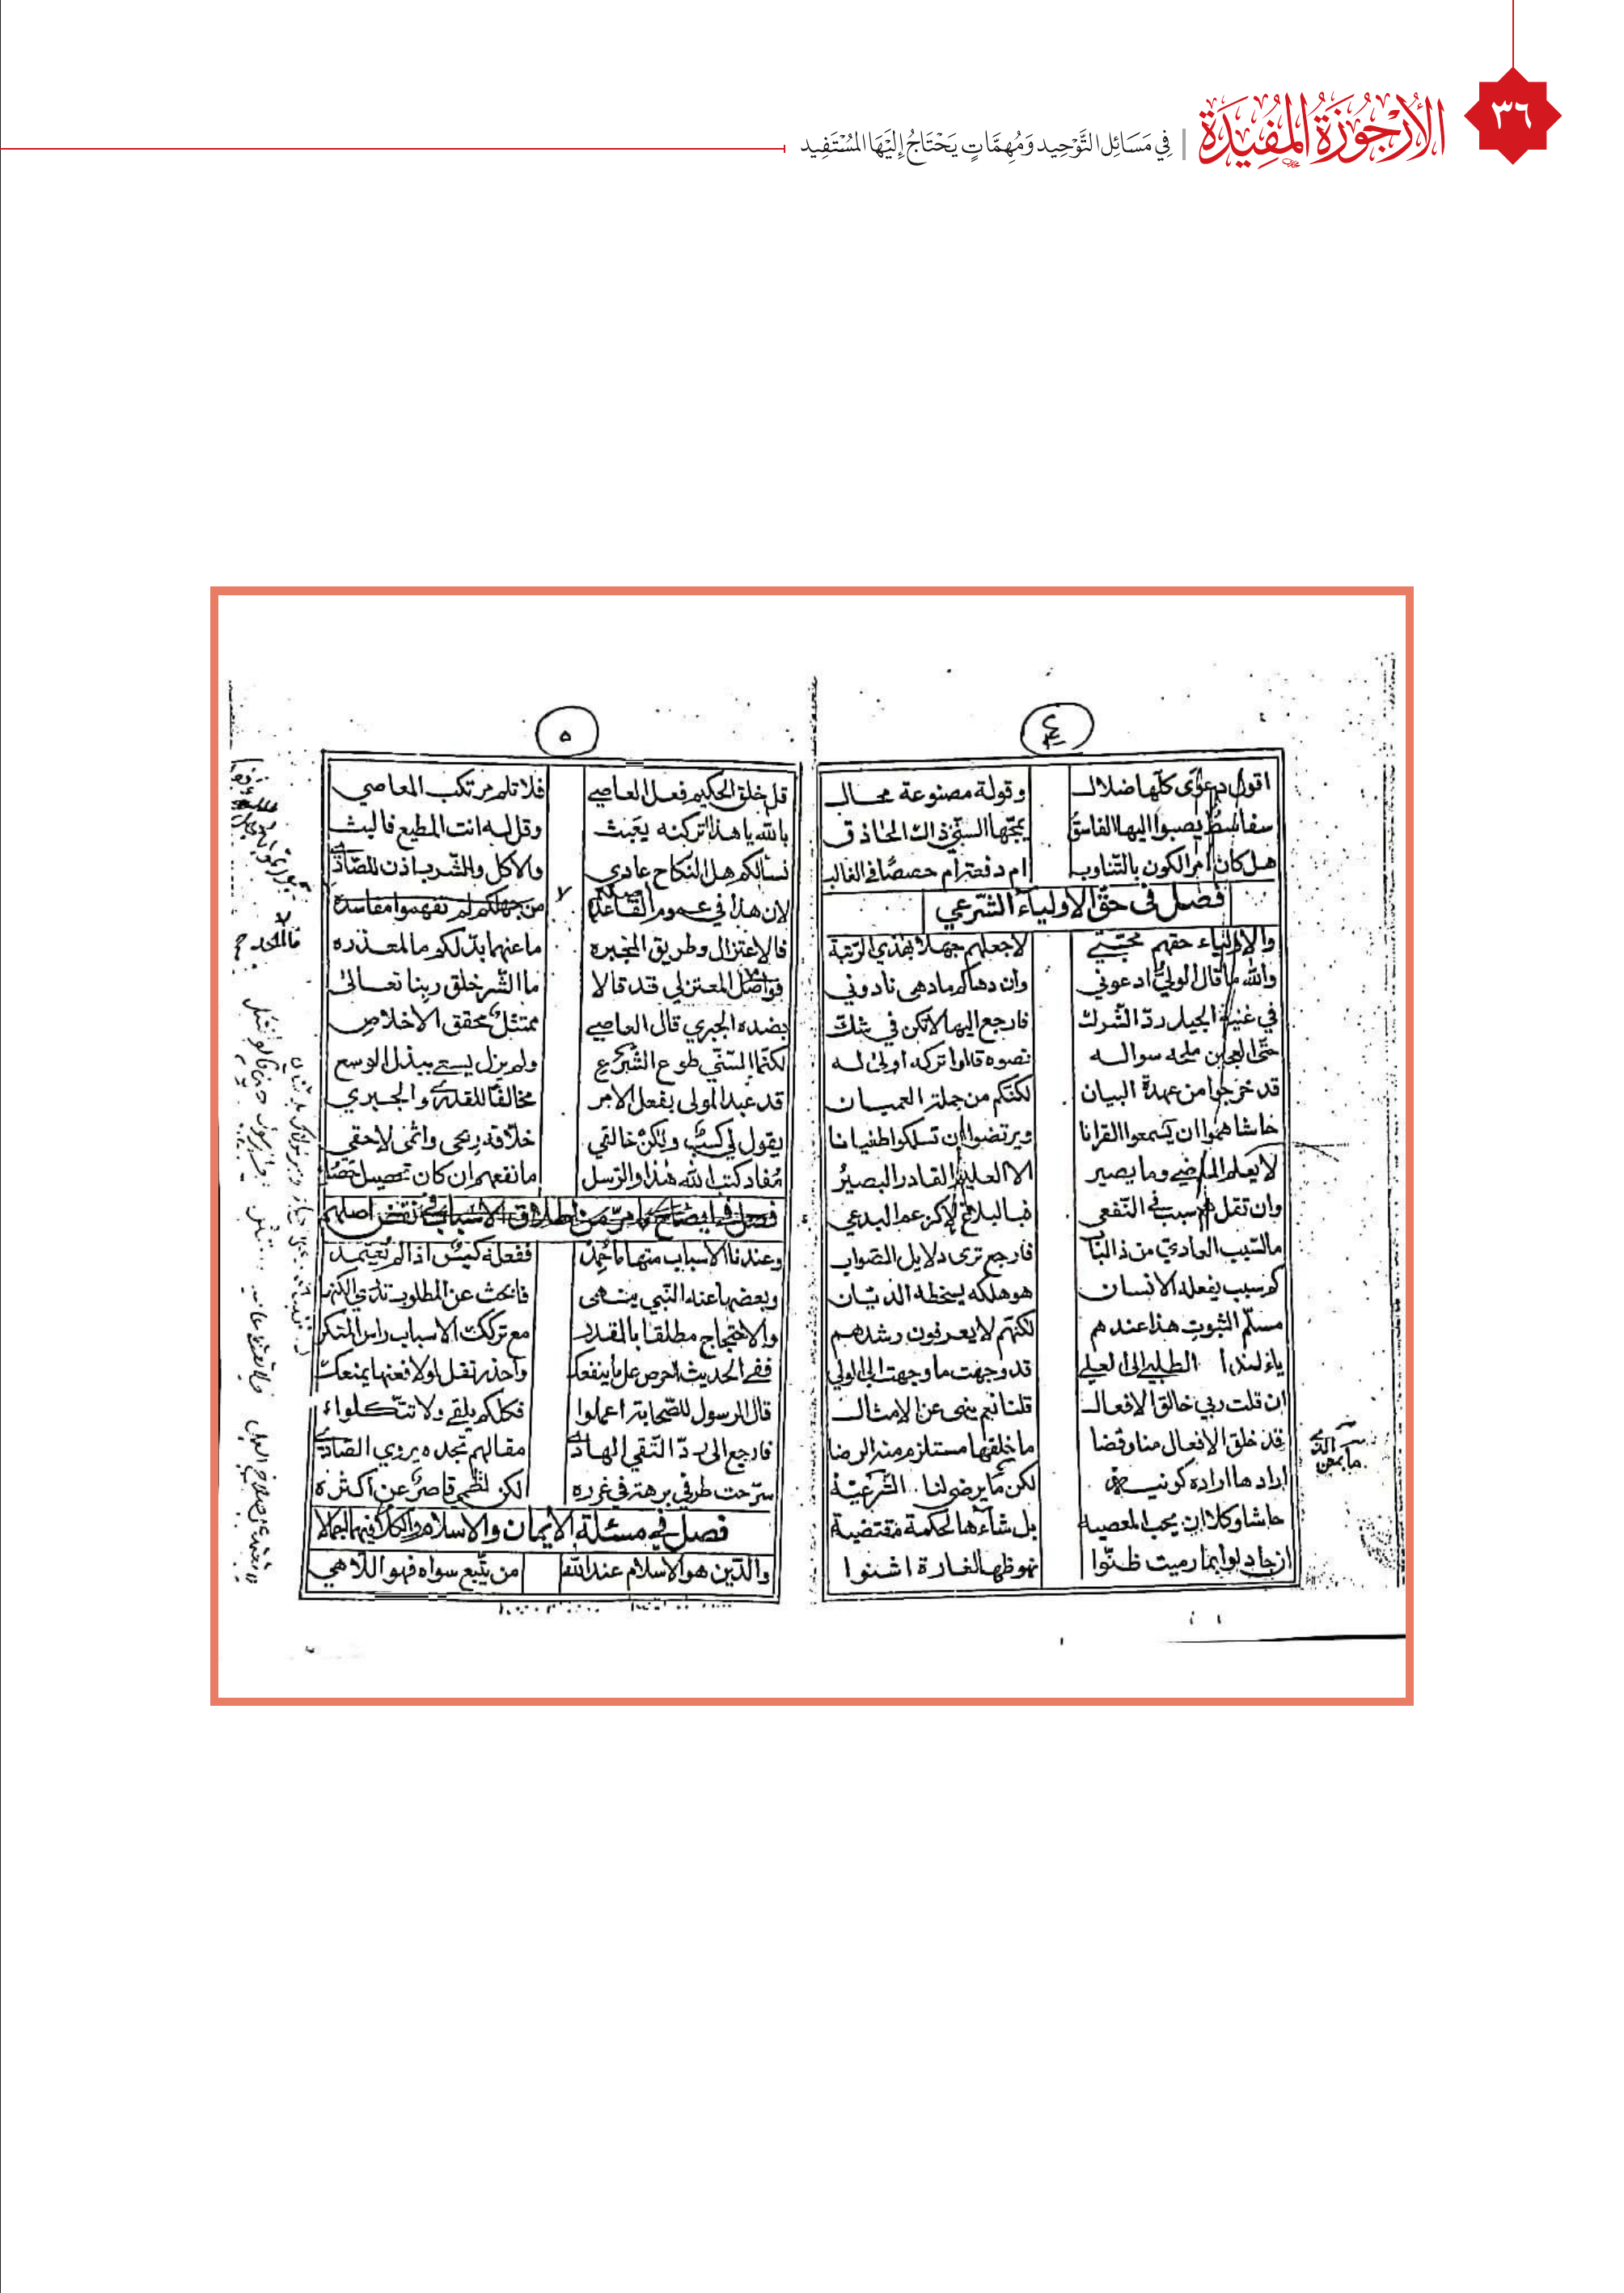 ٣٦
الأرجوزة المفيدة | في مسائل التوحيد ومهمات يحتاج إليها المستفيد
٤
اقول دعوى كلها ضلال وقولة مصنوعة محال
سفاسط يصبوا اليها الفاسق يمجها السني ذاك الحاذق
هل كان امر الكون بالتناوب ام دفعة ام حصصا في الغالب
فصل في حق الاولياء الشرعي
والاولياء حقهم محبتي لاجعلهم جهلا بهذي الرتبة
والله ما قال الولي ادعوني وان دهاكم ما دهى نادوني
في غنية الجيل رد الشرك فارجع اليها لا تكن في شك
حتى العجين ملحه سواله نصوه قالوا تركه اولى له
قد خرجوا من عهدة البيان لكنكم من جملة العميان
حاشا هموا ان يسمعوا القرانا ويرتضوا ان تسلكوا طغيانا
لا يعلم الماضي وما يصير الا العليم القادر البصير
وان تقل هم سبب في النفعي
مالسبب العادي من ذا الباب فارجع ترى دلايل الصواب
كم سبب يفعله الانسان هو هلكه يسخطه الديان
مسلم الثبوت هذا عندهم لكنهم لا يعرفون رشدهم
قد وجهت ما وجهت الى الولي
ان قلت ربي خالق الافعال قلنا نعم ينهى عن الامثال
قد خلق الافعال منا وقضا ما خلقها مستلزم منه الرضا
ارادها ارادة كونية لكن ما يرضى لنا الشرعية
حاشا وكلا ان يحب المعصية بل شاءها لحكمة مقتضية
ان جادلوا بما رميت ظنوا نهوظها لغارة اشنوا
٥
قل خلق الحكيم فعل العاصي فلا تلم مرتكب المعاصي
بالله يا هذا تركته يعبث وقل له انت المطيع فالبث
نسألكم هل النكاح عادي والاكل والشرب اذن للصادي
لان هذا في عموم القاعدة من جهلكم لم تفهموا مفاسده
فالاعتزال وطريق المجبره ما عنهما بد لكم ما المعذره
فواصل المعتزلي قد قالا ما الشر خلق ربنا تعالى
بضده الجبري قال العاصي ممتثل محقق الاخلاص
لكنما السني طوع الشرع ولم يزل يسعى ببذل الوسع
قد عبد المولى بفعل الامر مخالفا للقدري والجبري
يقول لي كسب ولكن خالقي خلاقه ربحي واثمي لاحقي
مفاد كتب الله هذا والرسل ما نفعهم ان كان تحصيل حصل
فصل في ايضاح ما مر من اطلاق الاسباب في نقض اصلهم
وعندنا الاسباب منها ما حمد ففعله كيس اذا لم يعتمد
وبعضها عنه النبي ينهى فابحث عن المطلوب تدري الكنه
والاحتجاج مطلقا بالقدر مع تركك الاسباب راس المنكر
ففي الحديث احرص على ما ينفعك واحذر تقل لولا فعنها يمنعك
قال الرسول للصحابة اعملوا فكلكم يلقى ولا تتكلوا
فارجع الى رد التقي الهادي مقالهم تجده يروي الصادي
سرحت طرفي برهة في غرره لكن نظمي قاصر عن اكثره
فصل في مسئلة الايمان والاسلام
والدين هو الاسلام عند الله من يتبع سواه فهو اللاهي